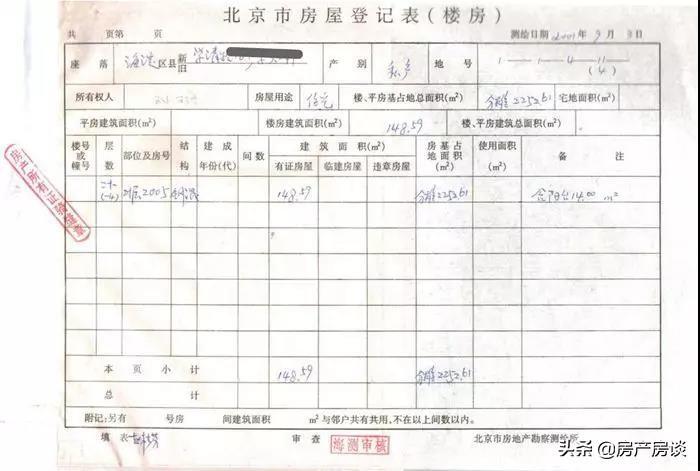 北京市房屋登记表(楼房)
共 页第 页 测绘日期2001年9月 日
座落 海淀区县 新旧 产别 私产 地号 1-1-4-11 (4)
所有权人 房屋用途 住宅 楼、平房基占地总面积(m²) 分摊2252.61 宅地面积(m²)
平房建筑面积(m²) 楼房建筑面积(m²) 148.59 楼、平房建筑总面积(m²)
楼号或幢号 层数 部位及房号 结构 建成年份(代) 间数 建筑面积(m²) 有证房屋 临建房屋 违章房屋 房基占地面积(m²) 使用面积(m²) 备注
2005 148.59 分摊2252.61 含阳台14.00 m²
本页小计 148.59 分摊2252.61
总计
附记:另有 号房 间建筑面积 m²与邻户共有共用,不在以上间数以内。
填表 审查 海测审核 北京市房地产勘察测绘所
头条 @房产房谈